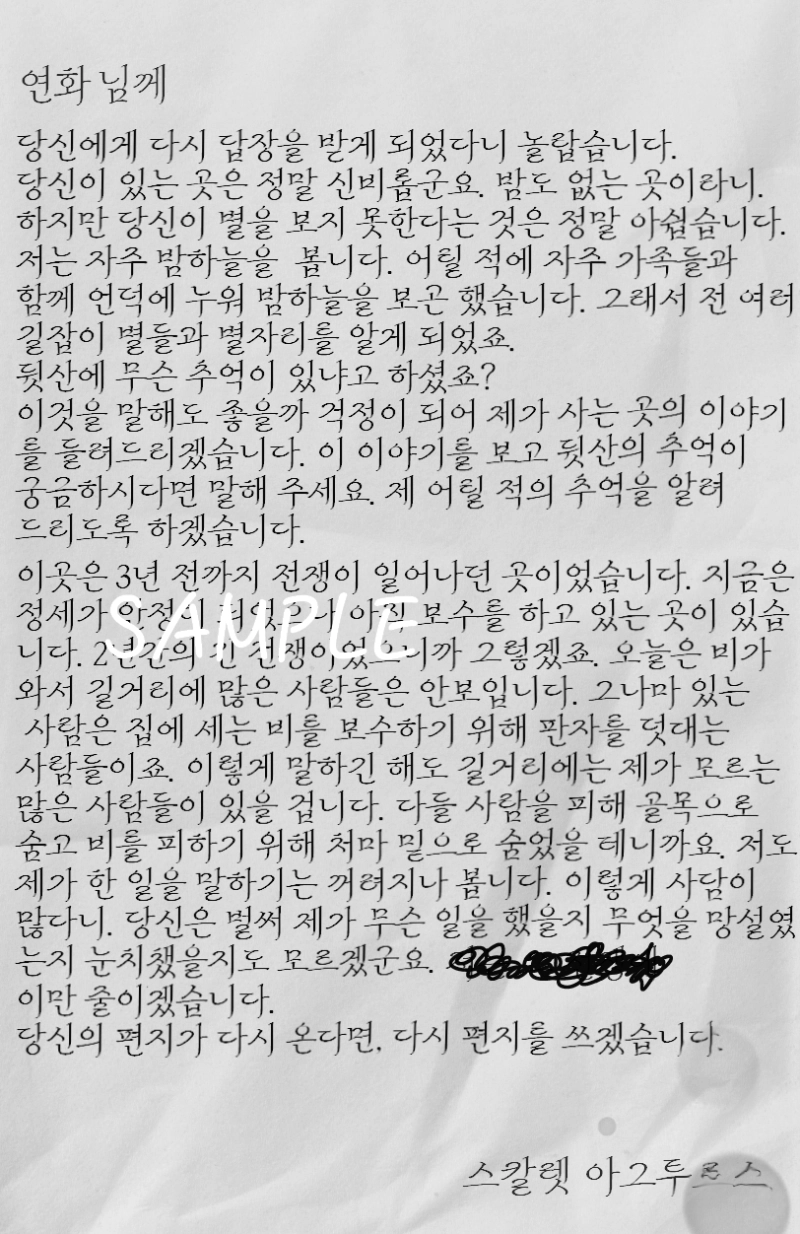 연화 님께
당신에게 다시 답장을 받게 되었다니 놀랍습니다.
당신이 있는 곳은 정말 신비롭군요. 밤도 없는 곳이라니.
하지만 당신이 별을 보지 못한다는 것은 정말 아쉽습니다.
저는 자주 밤하늘을 봅니다. 어릴 적에 자주 가족들과
함께 언덕에 누워 밤하늘을 보곤 했습니다. 그래서 전 여러
길잡이 별들과 별자리를 알게 되었죠.
뒷산에 무슨 추억이 있냐고 하셨죠?
이것을 말해도 좋을까 걱정이 되어 제가 사는 곳의 이야기
를 들려드리겠습니다. 이 이야기를 보고 뒷산의 추억이
궁금하시다면 말해 주세요. 제 어릴 적의 추억을 알려
드리도록 하겠습니다.
이곳은 3년 전까지 전쟁이 일어나던 곳이었습니다. 지금은
정세가 안정이 되었으나 아직 보수를 하고 있는 곳이 있습
니다. 2년간의 긴 전쟁이었으니까 그렇겠죠. 오늘은 비가
와서 길거리에 많은 사람들은 안보입니다. 그나마 있는
사람은 집에 세는 비를 보수하기 위해 판자를 덧대는
사람들이죠. 이렇게 말하긴 해도 길거리에는 제가 모르는
많은 사람들이 있을 겁니다. 다들 사람을 피해 골목으로
숨고 비를 피하기 위해 처마 밑으로 숨었을 테니까요. 저도
제가 한 일을 말하기는 꺼려지나 봅니다. 이렇게 사담이
많다니. 당신은 벌써 제가 무슨 일을 했을지 무엇을 망설였
는지 눈치챘을지도 모르겠군요.
이만 줄이겠습니다.
당신의 편지가 다시 온다면, 다시 편지를 쓰겠습니다.
스칼렛 아그투르스
SAMPLE